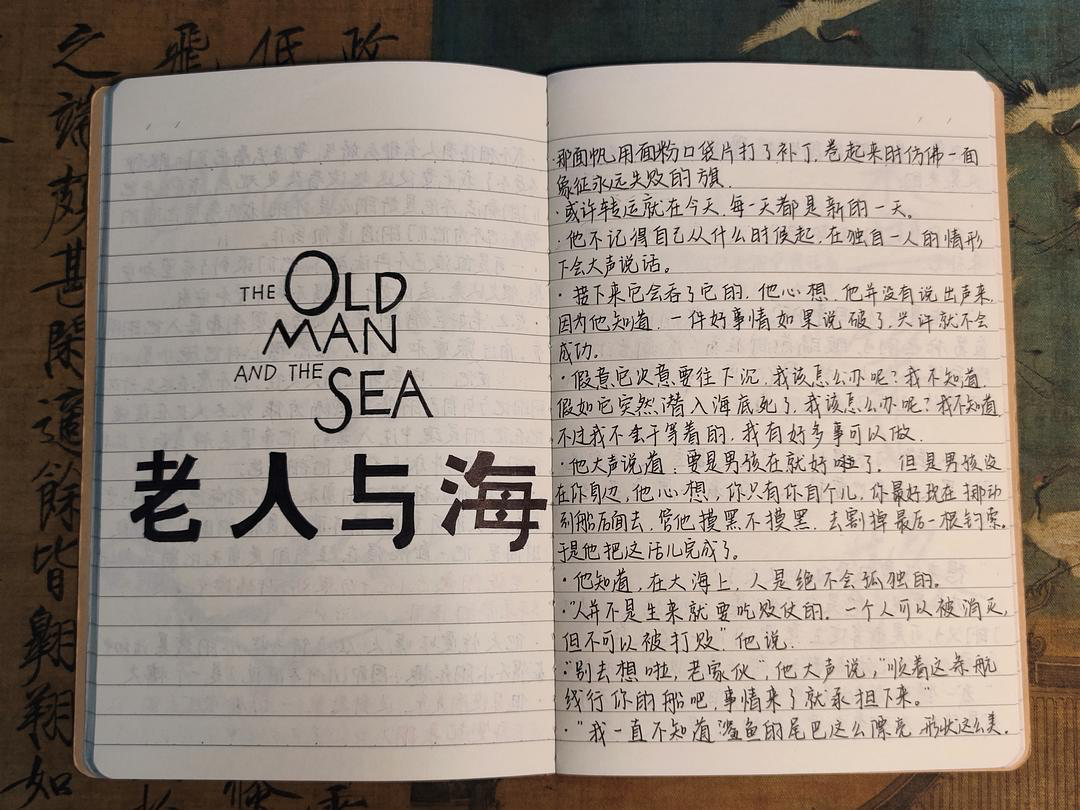 THE OLD
MAN
AND THE
SEA
老人与海
那面帆用面粉口袋片打了补丁，卷起来时仿佛一面
象征永远失败的旗．
·或许转运就在今天，每一天都是新的一天。
·他不记得自己从什么时候起，在独自一人的情形
下会大声说话。
·接下来它会吞了它的，他心想，他并没有说出声来，
因为他知道，一件好事情如果说破了，兴许就不会
成功．
·假意它决意要往下沉，我该怎么办呢？我不知道．
假如它突然潜入海底死了，我该怎么办呢？我不知道
不过我不会干等着的，我有好多事可以做．
·他大声说道，要是男孩在就好啦了．但是男孩没
在你身边，他心想，你只有你自个儿，你最好现在挪动
到船后面去，管他摸黑不摸黑，去割掉最后一根钓索．
于是他把这活儿完成了。
·他知道，在大海上，人是绝不会孤独的．
·“人并不是生来就要吃败仗的．一个人可以被消灭，
但不可以被打败”他说．
·“别去想啦，老家伙”，他大声说，“顺着这条航
线行你的船吧，事情来了就承担下来．”
·“我一直不知道鲨鱼的尾巴这么漂亮 形状这么美．
之
端
甚
適
餘
皆
翱
翔
如
飛
低